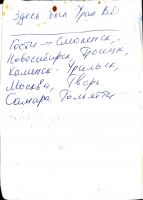 Здесь был Урал ВД
Гости — Смоленск, -
Новосибирск, Троицк,
Каменск-Уральск,
Москва, Тверь
Самара, Тольятти